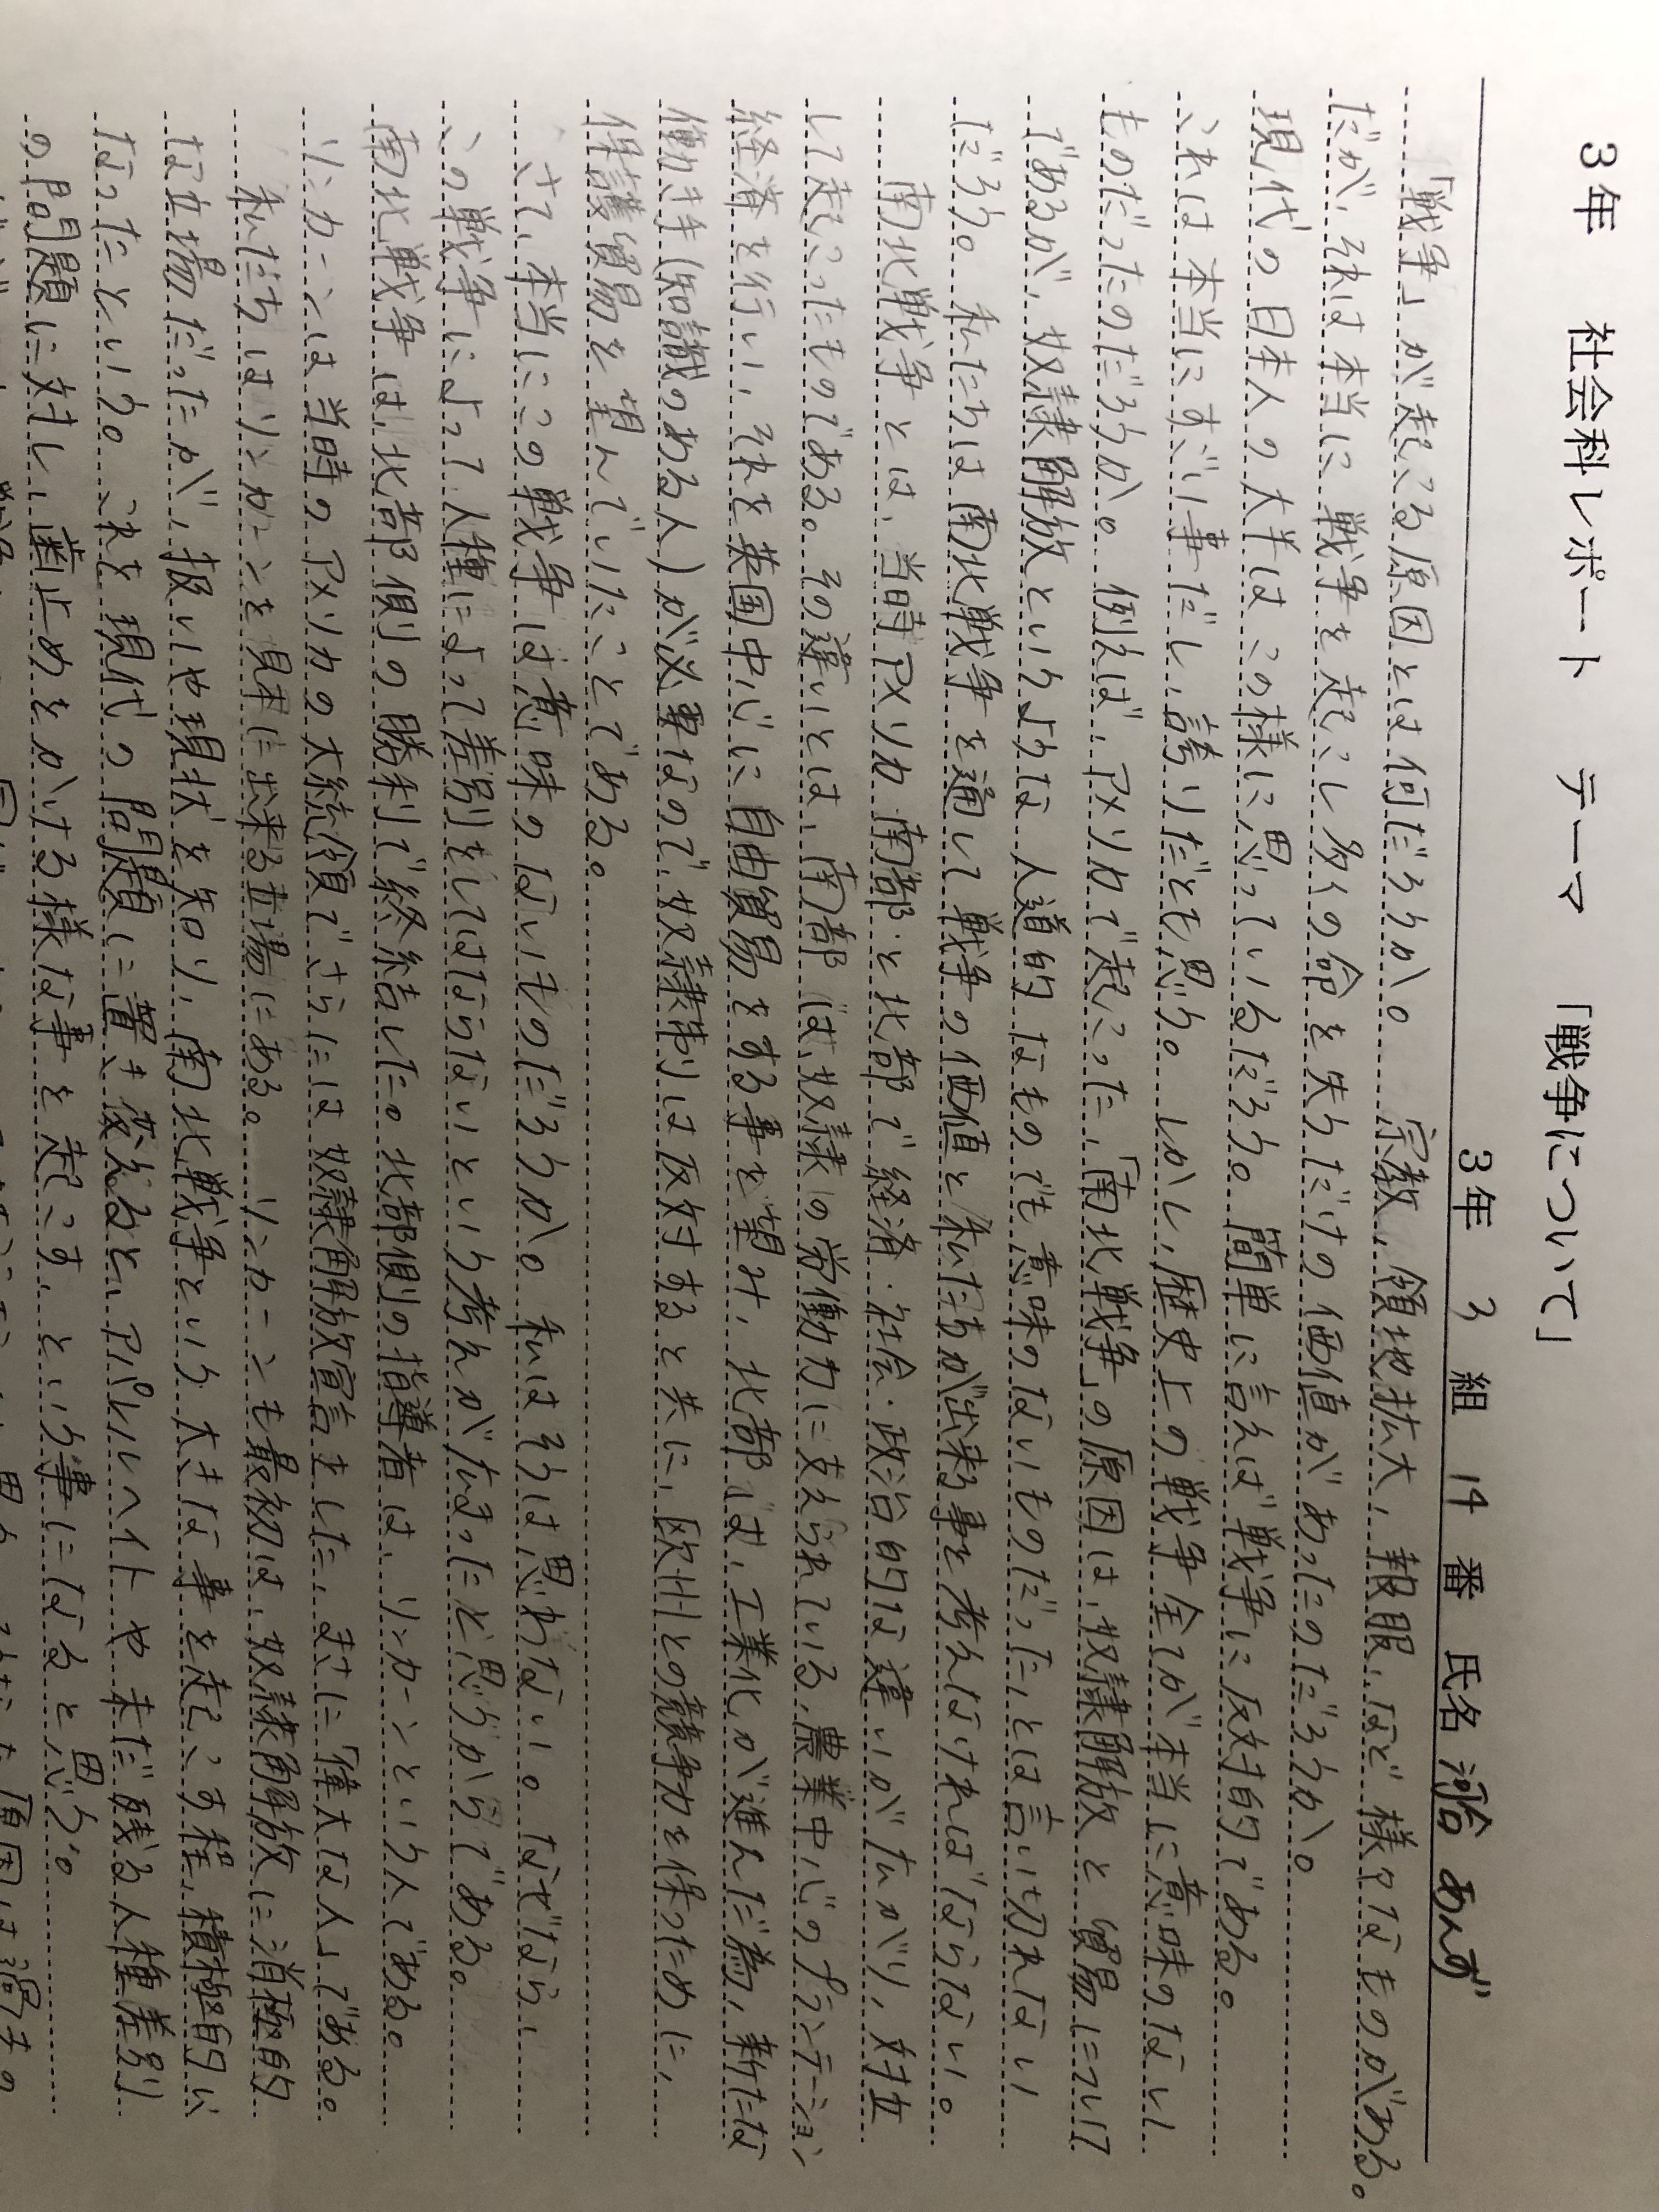 3年　社会科レポート　テーマ　「戦争について」
3年 3 組 14 番 氏名 河合 あんず
「戦争」が起こる原因とは何だろうか。宗教、領地拡大、報服、など様々なものがある。
だが、それは本当に戦争を起こし多くの命を失うだけの価値があったのだろうか。
現代の日本人の大半はこの様に思っているだろう。簡単に言えば戦争に反対的である。
これは本当にすごい事だし、誇りだとも思う。しかし、歴史上の戦争全てが本当に意味のない
ものだったのだろうか。例えば、アメリカで起こった、「南北戦争」の原因は、奴隷解放と貿易について
であるが、奴隷解放というような人道的なものでも意味のないものだった、とは言い切れない
だろう。私たちは南北戦争を通して戦争の価値と私たちが出来る事を考えなければならない。
南北戦争とは、当時アメリカ南部と北部で経済・社会・政治的な違いが広がり、対立
して起こったものである。その違いとは、南部は、奴隷の労働力に支えられている、農業中心のプランテーション
経済を行い、それを英国中心に自由貿易をする事を望み、北部は、工業化が進んだ為、新たな
働き手(知識のある人)が必要なので、奴隷制は反対すると共に、欧州との競争力を保つために、
保護貿易を望んでいたことである。
さて、本当にこの戦争は意味のないものだろうか。私はそうは思わない。なぜなら、
この戦争によって人種によって差別をしてはならないという考えが広まったと思うからである。
南北戦争は、北部側の勝利で終結した。北部側の指導者は、リンカーンという人である。
リンカーンは当時のアメリカの大統領でさらには奴隷解放宣言をした、まさに「偉大な人」である。
私たちはリンカーンを見本に出来る立場にある。リンカーンも最初は、奴隷解放に消極的
な立場だったが、扱いや現状を知り、南北戦争という大きな事を起こす程、積極的に
なったという。これを現代の問題に置き変えると、アパルトヘイトや未だ残る人種差別
の問題に対し、歯止めをかける様な事を起こす、という事になると思う。